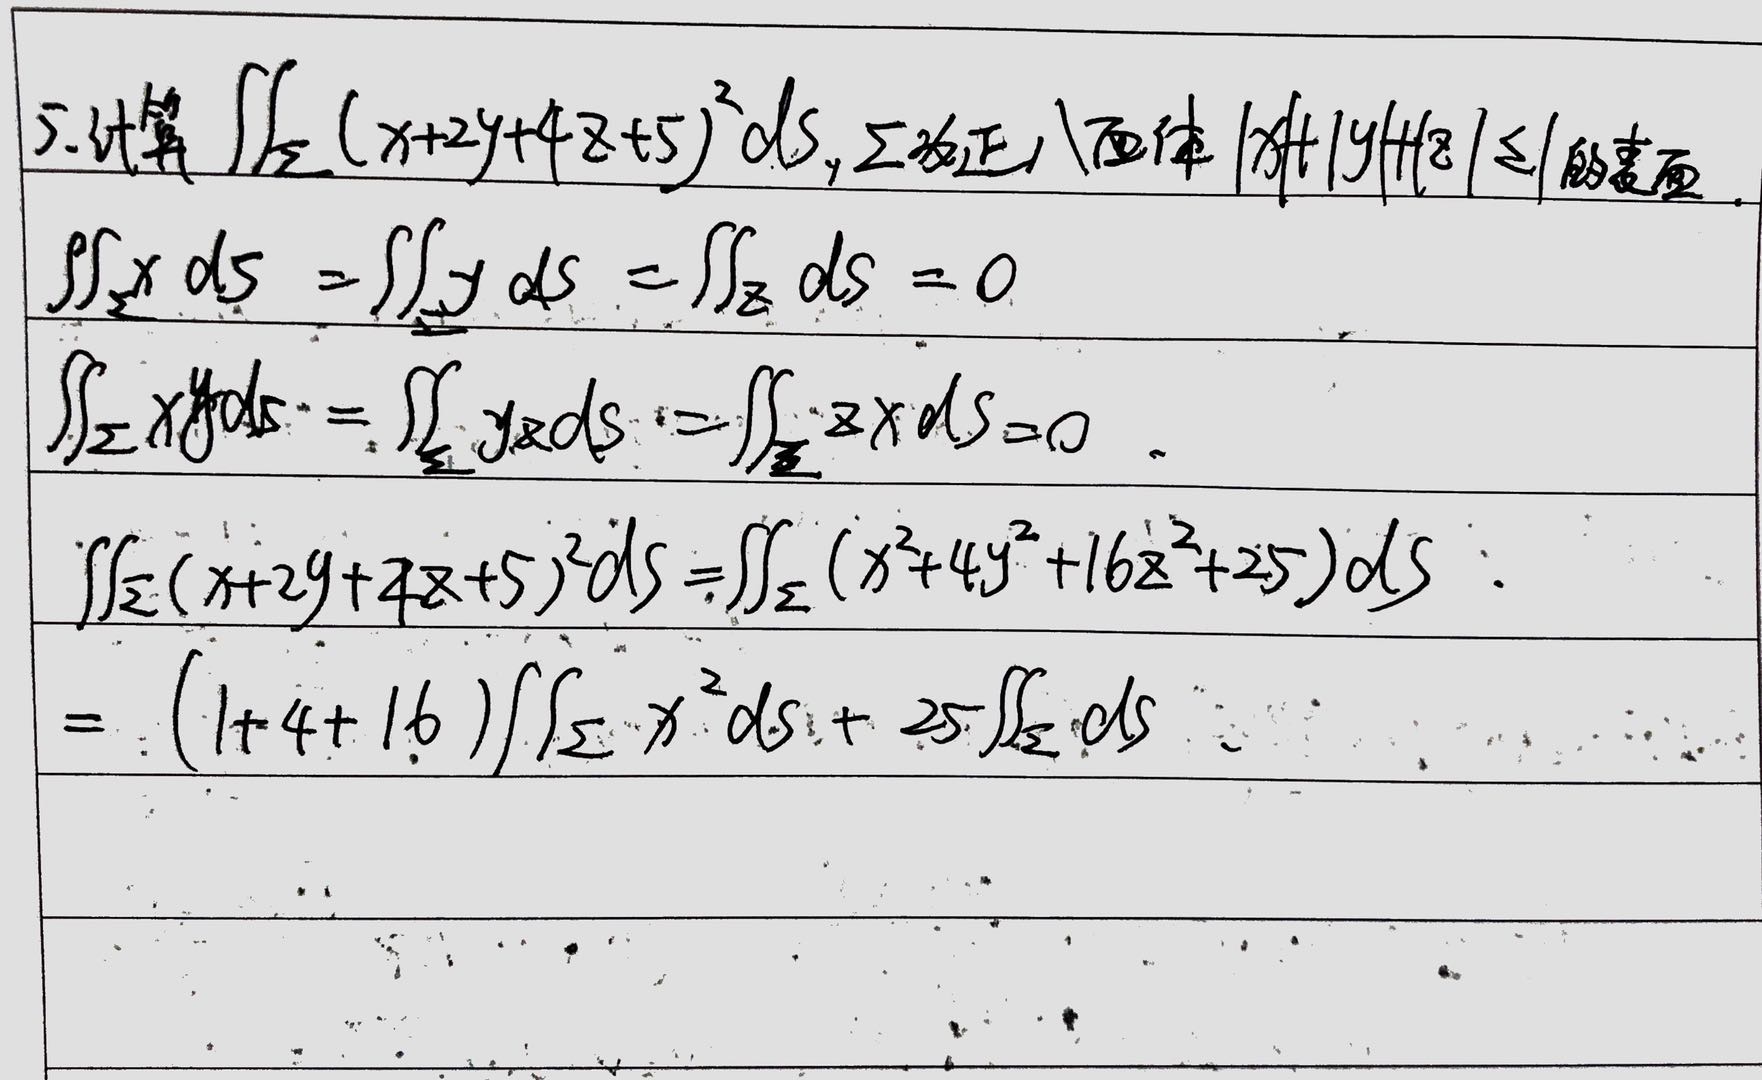 5.计算 ∬_Σ (x+2y+4z+5)²ds, Σ为正八面体 |x|+|y|+|z|≤1的表面.
∬_Σ x ds = ∬_Σ y ds = ∬_z ds = 0
∬_Σ xyds = ∬_Σ yzds = ∬_Σ zxds=0.
∬_Σ(x+2y+4z+5)²ds=∬_Σ (x²+4y²+16z²+25)ds.
= (1+4+16)∬_Σ x²ds + 25∬_Σ ds.